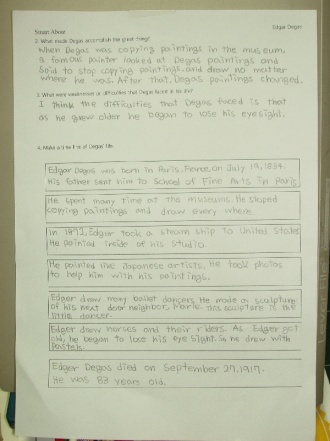 Edgar Degas
2. What made Degas accomplish the great things?
When Degas was copying paintings in the museum,
a famous painter looked at Degas paintings and
said to stop copying paintings, and draw no matter
where he was. After that, Degas paintings changed.
3. What were weaknesses or difficulties that Degas faced in his life?
I think the difficulties that Degas faced is that
as he grew older he began to lose his eyesight.
4. Make a time line of Degas' life.
Edgar Degas was born in Paris, France, on July 19, 1834.
His father sent him to School of Fine Arts in Paris.
He spent many time at the museums. He
copying paintings and draw every where.
In 1872, Edgar took a steam ship to United States
He painted inside of his studio.
He painted like Japanese artists. He took photos
to help him with his paintings.
Edger draw many ballet dancers. He made a sculpture
of his next door neighbor, Marie. This sculpture is the
little dancer.
Edger draw horses and their riders. As Edger got
old, he began to lose his eye sight. So he drew with
pastels.
Edger Degas died on September 27, 1917.
He was 83 years old.